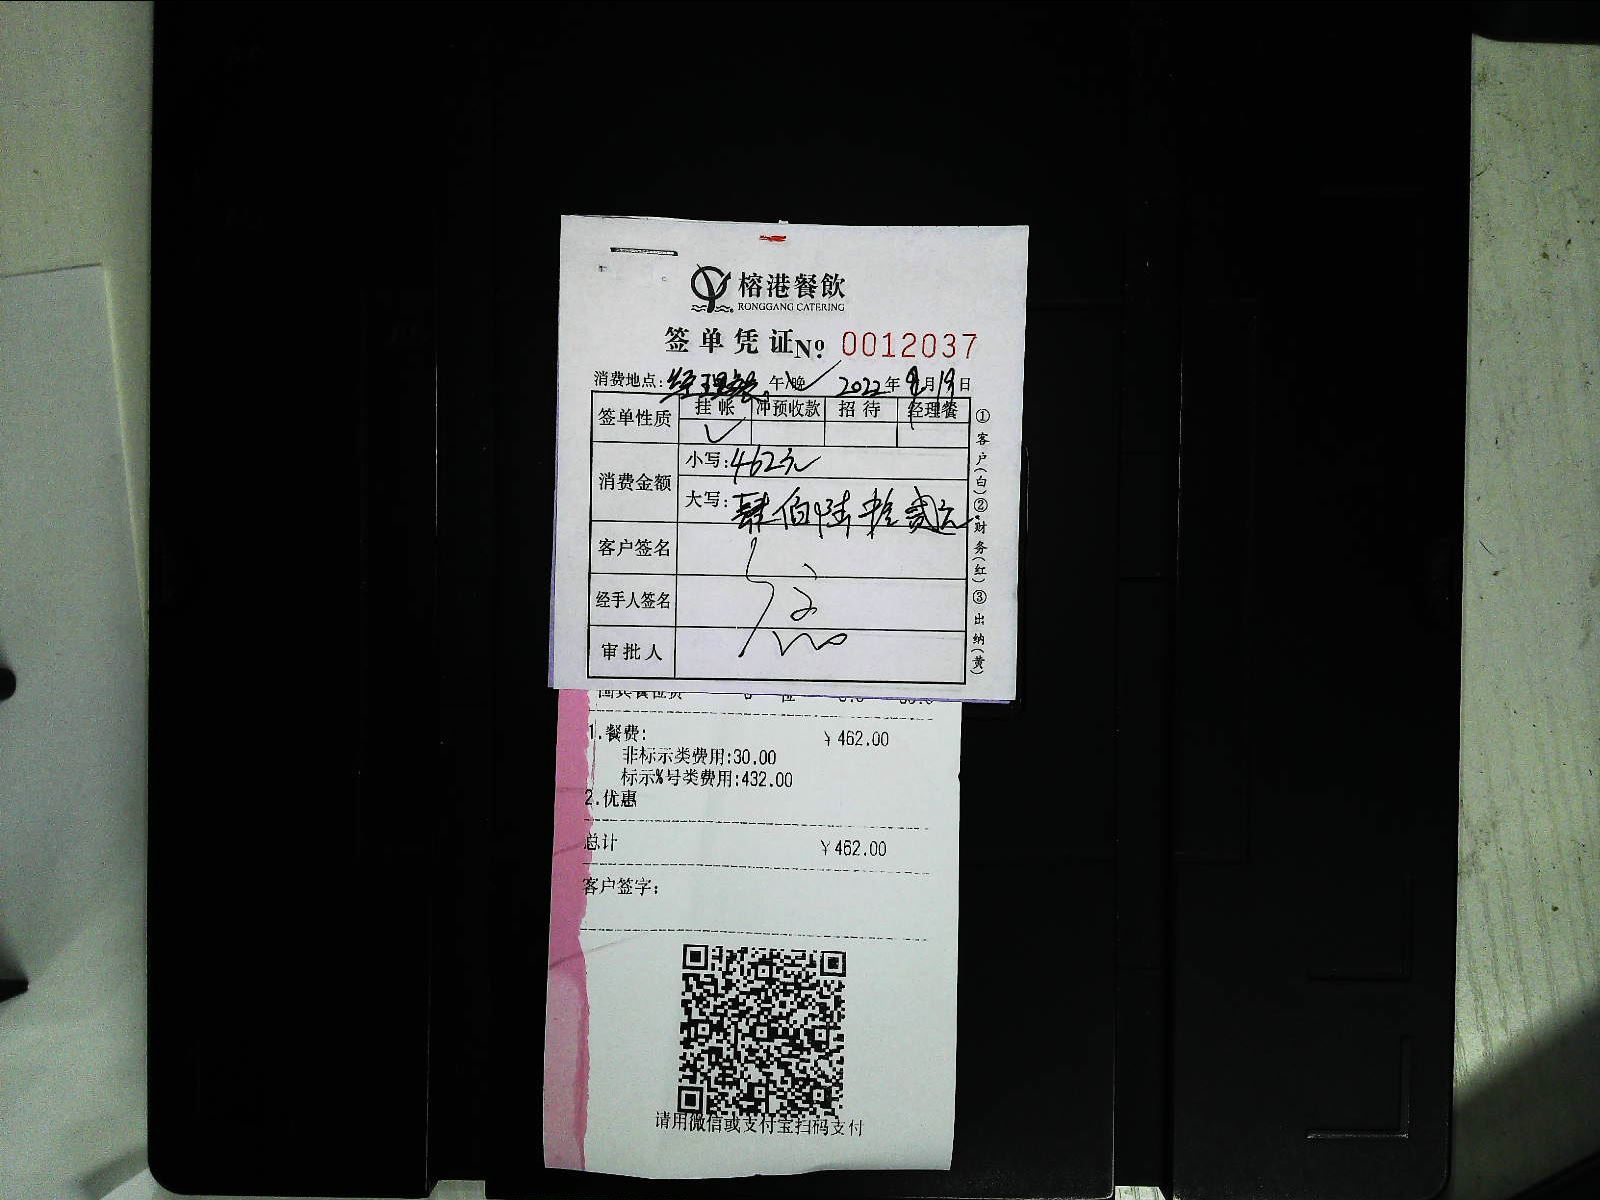 榕港餐飲
RONGGANG CATERING
签单凭证 Nº 0012037
消费地点: 经理餐 午\晚 ✓ 2022年9月19日
签单性质 挂帐 冲预收款 招待 经理餐
✓
消费金额 小写: 462元
大写: 肆佰陆拾贰元
客户签名
经手人签名
审批人
①客户(白)②财务(红)③出纳(黄)
1.餐费: ¥462.00
非标示类费用:30.00
标示%号类费用:432.00
2.优惠
总计 ¥462.00
客户签字:
请用微信或支付宝扫码支付